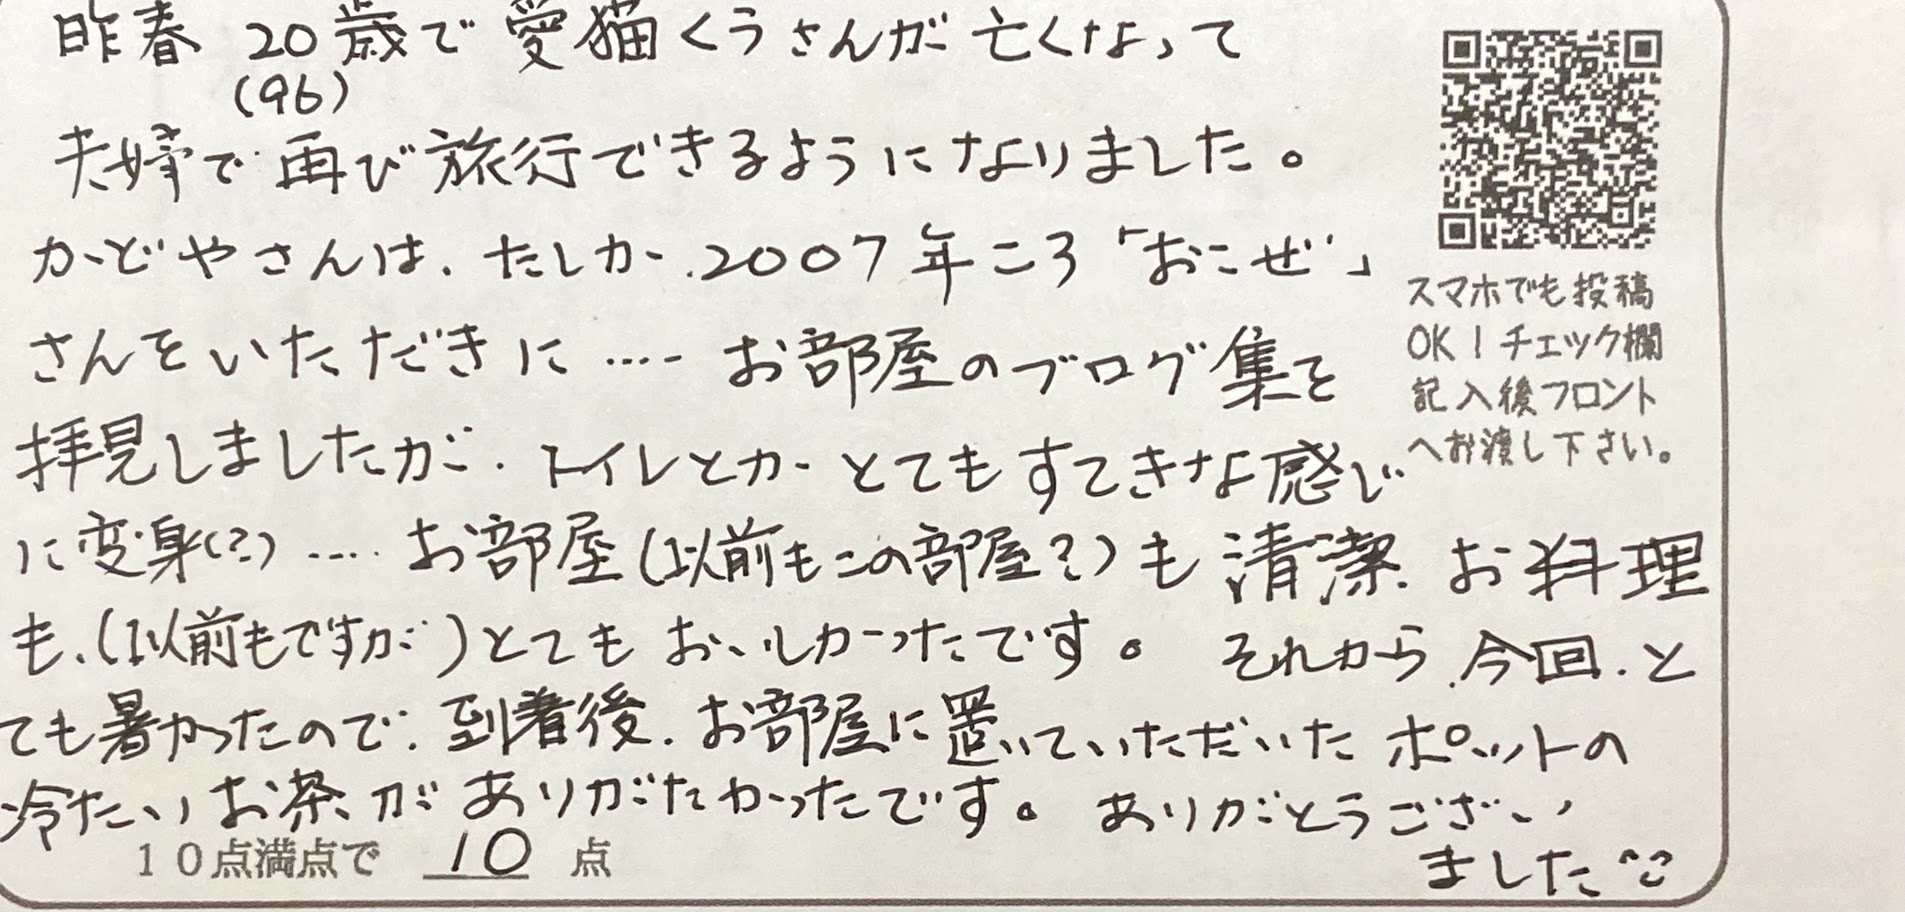 昨春 20歳で愛猫くうさんが亡くなって
(96)
夫婦で再び旅行できるようになりました。
かどやさんは、たしか、2007年ころ「おこぜ」
さんをいただきに…. お部屋のブログ集を
拝見しましたが、トイレとか とてもすてきな感じ
に変身(?) ….. お部屋(以前もこの部屋?)も清潔、お料理
も、(以前もですが)とてもおいしかったです。 それから、今回、と
ても暑かったので、到着後、お部屋に置いていただいたポットの
冷たいお茶がありがたかったです。ありがとうござい
ました^^
10点満点で 10 点
スマホでも投稿
OK！チェック欄
記入後フロント
へお渡し下さい。